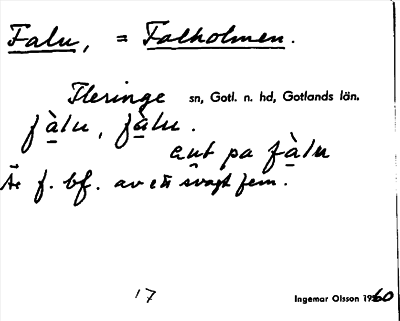 Falu, = Falholmen.
Fleringe sn, Gotl. n. hd, Gotlands län.
fàlu, fàlu.
aut pa fàlu
Är f. bf. av ett svagt fem.
17
Ingemar Olsson 1960